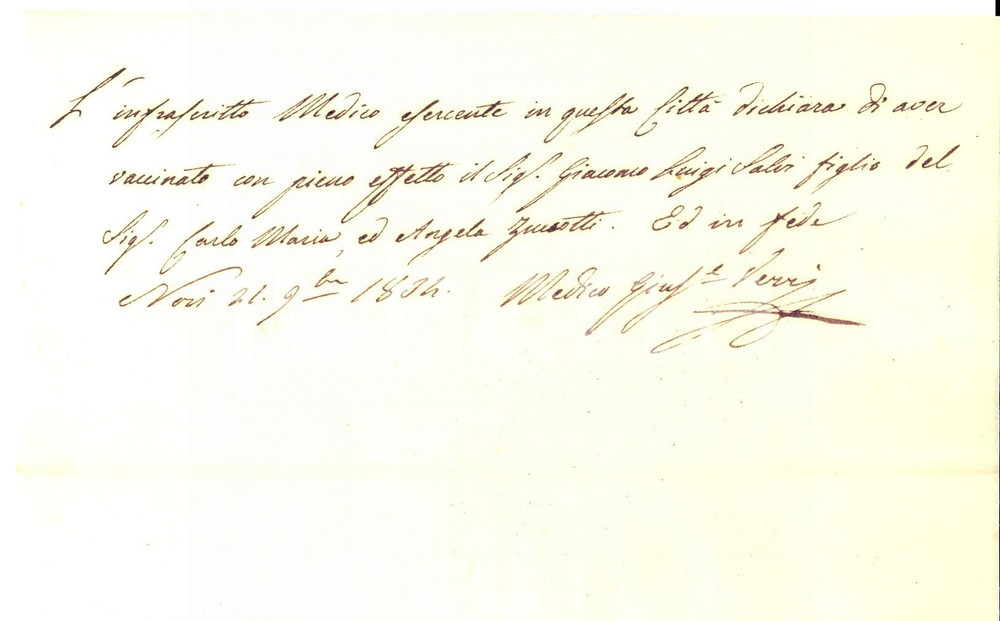 L'infrascritto Medico esercente in questa Città dichiara di aver
vaccinato con pieno effetto il Sig.r Giacomo Luigi Salvi figlio del
Sig.r Carlo Maria, ed Angela Zuccotti. Ed in fede
Novi 21. 9bre 1834. Medico Gius.e Verri